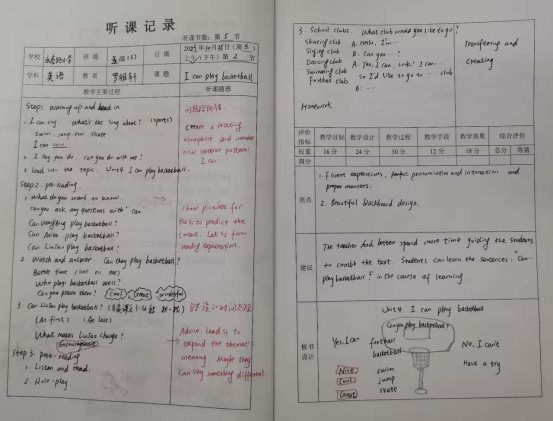 听课记录
听课节数：第 5 节
学校
班级 五(5)
日期 2023年10月25日(周三)
上午/(下午) 第 2 节
学科 英语
教者
课题 I can play basketball
教学主要过程
听课随感
Step1. Warming up and lead in
1. I can sing What's the song about? (sports)
swim, jump run skate
I can
2. I say you do can you do with me?
3. lead in: the topic. Unit4 I can play basketball.
create a relaxing
atmosphere and
new sentence pattern:
I can...
Step2. pre-reading.
1. What do you want to know
can you ask any questions with "can"
Can Wangping play basketball?
Can Mike play basketball?
Can LiuTao play basketball?
Show pictures for
the Ss to predict the
content. Let Ss form
reading expectation.
2. Watch and answer. Can they play basketball?
Battle time (one on one)
Who plays basketball well?
Can you praise them? Cool, Great, wonderful
3. Can LiuTao play basketball?
(At first) (At last)
What makes LiuTao change?
Encouragement
Advice lead Ss to
expand the thematic
meaning. Maybe they
can say something different.
Step 3. post-reading
1. Listen and read.
2. Role-play
3. School clubs. What club would you like to go?
Skating club A: Hello, I'm...
Singing club B: Can you...?
Dancing club A: Yes, I can. Look! I can...
Swimming club So I'd like to go to ... club
Football club B: ...
Homework
Transferring and
creating
评价指标 教学目标 教学设计 教学过程 教学手段 教学效果 综合评价
权重 16分 24分 30分 12分 18分 总分 等第
得分
亮点
1. Fluent expressions, perfect pronunciation and intonation and
proper manners.
2. Beautiful blackboard design.
建议
The teacher had better spend more time guiding the students
to the text. Students can learn the sentences: Can...
play basketball? in the course of learning.
板书设计
Unit4 I can play basketball
Can you play basketball?
Yes, I can
football
basketball
No, I can't
Have a try
Nice swim
Cool jump
Great skate